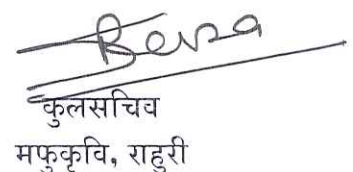 कुलसचिव
मफुकृवि, राहुरी